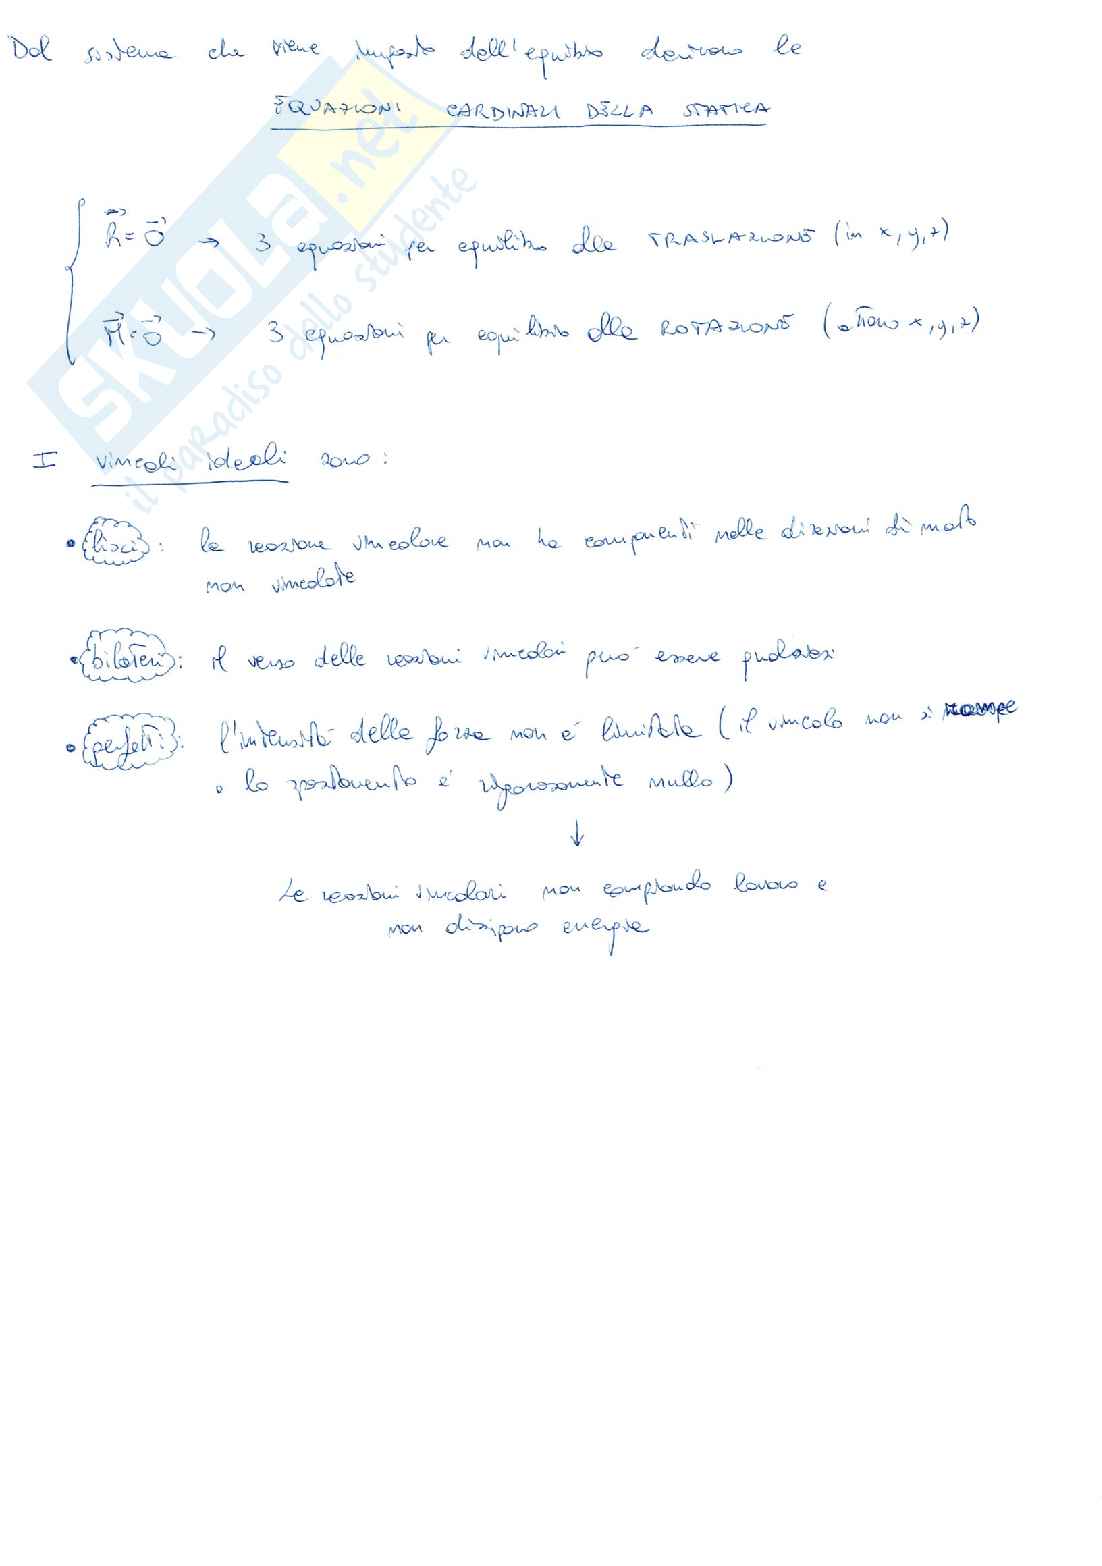 Dal sistema che viene imposto dall'equilibrio derivano le
EQUAZIONI CARDINALI DELLA STATICA
R = 0 → 3 equazioni per equilibrio alla TRASLAZIONE (in x, y, z)
M = 0 → 3 equazioni per equilibrio alla ROTAZIONE (attorno x, y, z)
I vincoli ideali sono:
• lisci: la reazione vincolare non ha componenti nelle direzioni di moto
non vincolate
• bilateri: il verso delle reazioni vincolari può essere qualsiasi
• perfetti: l'intensità della forza non è limitata (il vincolo non si rompe
e lo spostamento è rigorosamente nullo)
↓
Le reazioni vincolari non compiendo lavoro e
non dissipano energia
SKUOLA.net
il paradiso dello studente